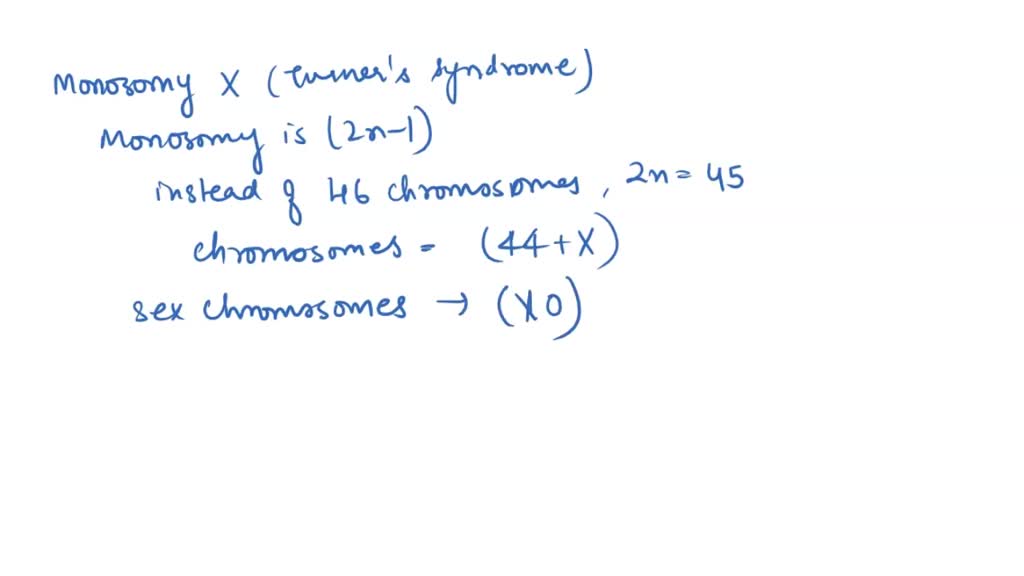 Monosomy X (Turner's syndrome)
Monosomy is (2n-1)
instead of 46 chromosomes, 2n = 45
chromosomes = (44+X)
sex chromosomes → (XO)